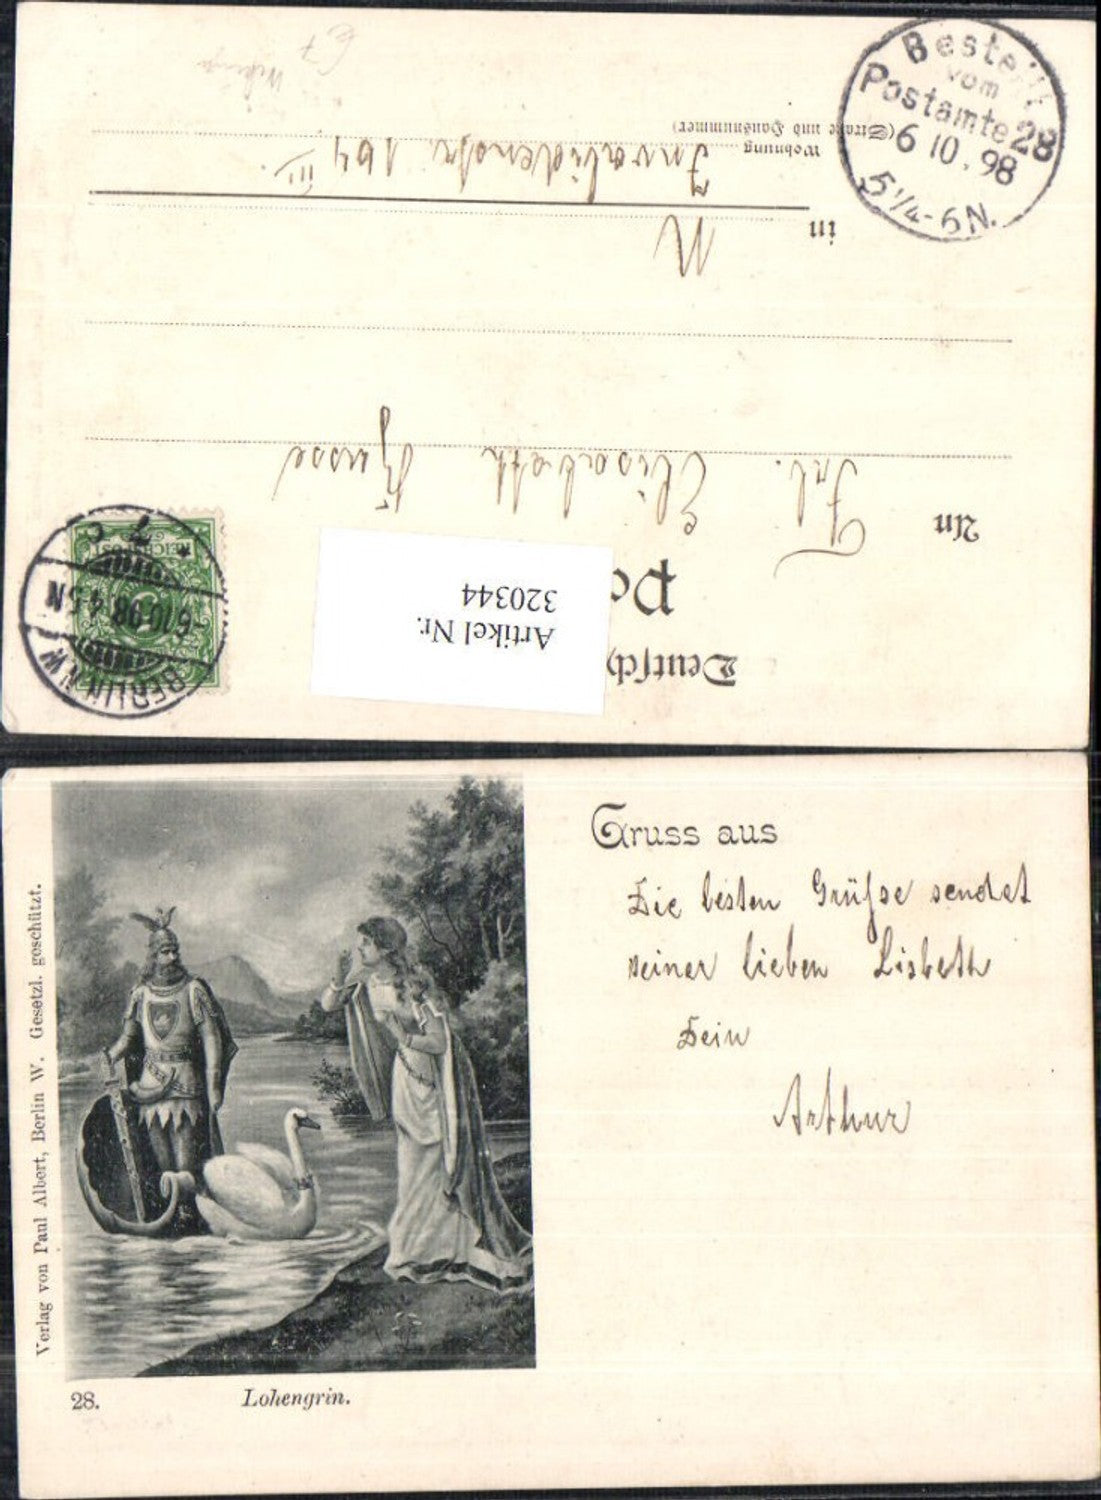 Bestellt
vom
Postamte 28
6 10. 98
5 1/4-6N.
Deutsch
Po
Artikel Nr.
320344
BERLIN N.W.
6.10.98.4-5N
* 7 c
REICHSPOST
5
An
Frl. Elisabeth
in
Wohnung
(Straße und Hausnummer)
Invalidenstr. 164 III.
Gruss aus
Die besten Grüße sendet
seiner lieben Lisbeth
Dein
Arthur
Verlag von Paul Albert, Berlin W. Gesetzl. geschützt.
28.
Lohengrin.